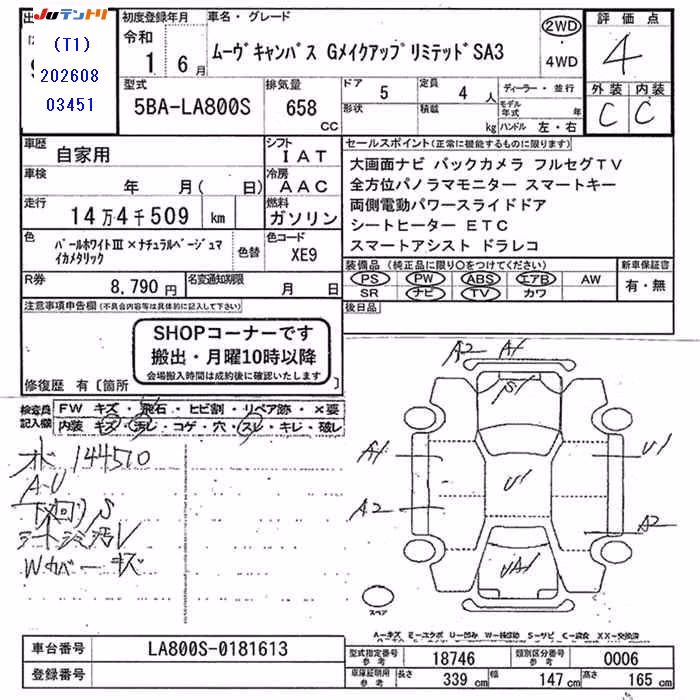 Juテントリ
(T1)
202608
03451
初度登録年月
令和
1 6月
車名・グレード
ムーヴキャンバス GメイクアップリミテッドSA3
2WD
・
4WD
評価点
4
外装 内装
C C
型式
5BA-LA800S
排気量
658
CC
ドア
5
定員
4 人
形状
積載
kg
ディーラー・並行
モデル年式 年
ハンドル 左・右
車歴
自家用
シフト
IAT
車検
年 月( 日)
冷房
AAC
走行
14万4千509 km
燃料
ガソリン
色
パールホワイトⅢ×ナチュラルベージュマイカメタリック
色替
色コード
XE9
R券
8,790円
名変通知期限
月 日
セールスポイント(正常に機能するものに限ります)
大画面ナビ バックカメラ フルセグTV
全方位パノラマモニター スマートキー
両側電動パワースライドドア
シートヒーター ETC
スマートアシスト ドラレコ
装備品(純正品に限り○をつけてください)
PS PW ABS エアB AW
SR ナビ TV カワ
新車保証書
有・無
後日品
注意事項申告欄(不具合内容等は具体的に記入して下さい)
SHOPコーナーです
搬出・月曜10時以降
会場搬入時間は成約後に確認いたします
修復歴 有〔箇所
検査員記入欄
FW キズ・飛石・ヒビ割・リペア跡・×要
内装 キズ・汚レ・コゲ・穴・スレ・キレ・破レ
オド 144510
A-U
下回りS
シートシミ汚レ
Wカバーキズ
A2 A1
S1
A1
U1
U1
A2
A2
UA1
スペア
A-キズ E-エクボ U-凹み W-補修跡 S-サビ C-腐食 XX-交換済
車台番号
LA800S-0181613
登録番号
型式指定番号
参考
18746
類別区分番号
参考
0006
車庫証明用
参考
長さ
339 cm
幅
147 cm
高さ
165 cm